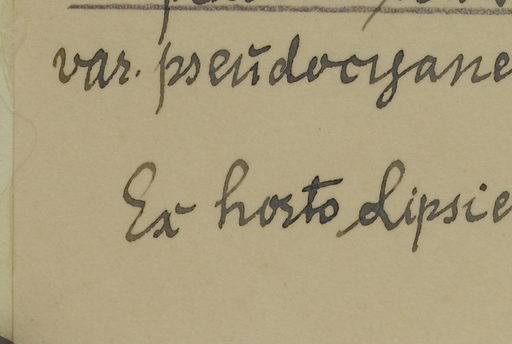 var. pseudocyane
Ex horto Lipsie